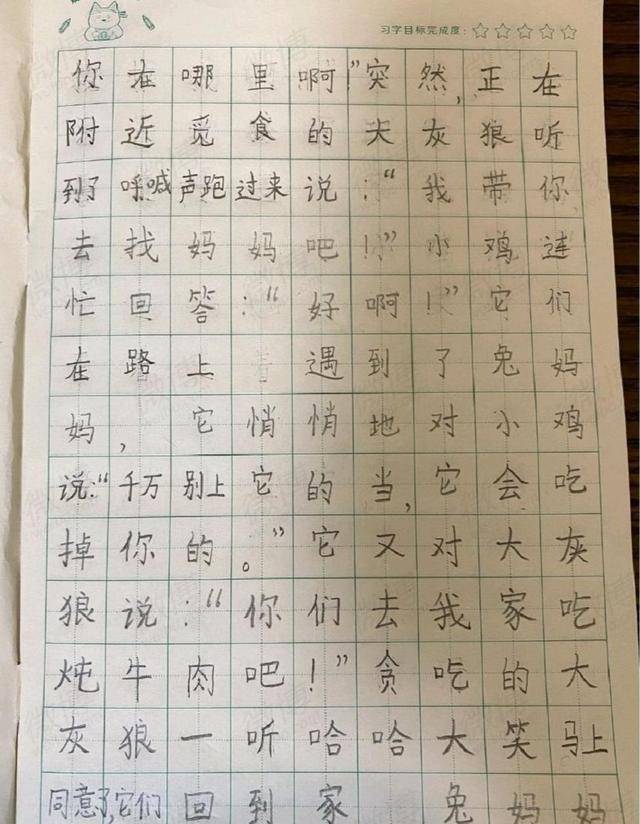 习字目标完成度：
你在哪里啊！”突然，正在
附近觅食的大灰狼听
到了呼喊声跑过来说：“我带你
去找妈妈吧！”小鸡连
忙回答：“好啊！”它们
在路上遇到了兔妈
妈，它悄悄地对小鸡
说：“千万别上它的当，它会吃
掉你的。”它又对大灰
狼说：“你们去我家吃
炖牛肉吧！”贪吃的大
灰狼一听哈哈大笑马上
同意了，它们回到家兔妈妈